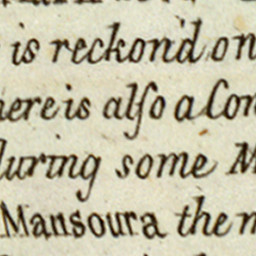 is reckon'd on
here is alſo a Con
during some M
Mansoura the m